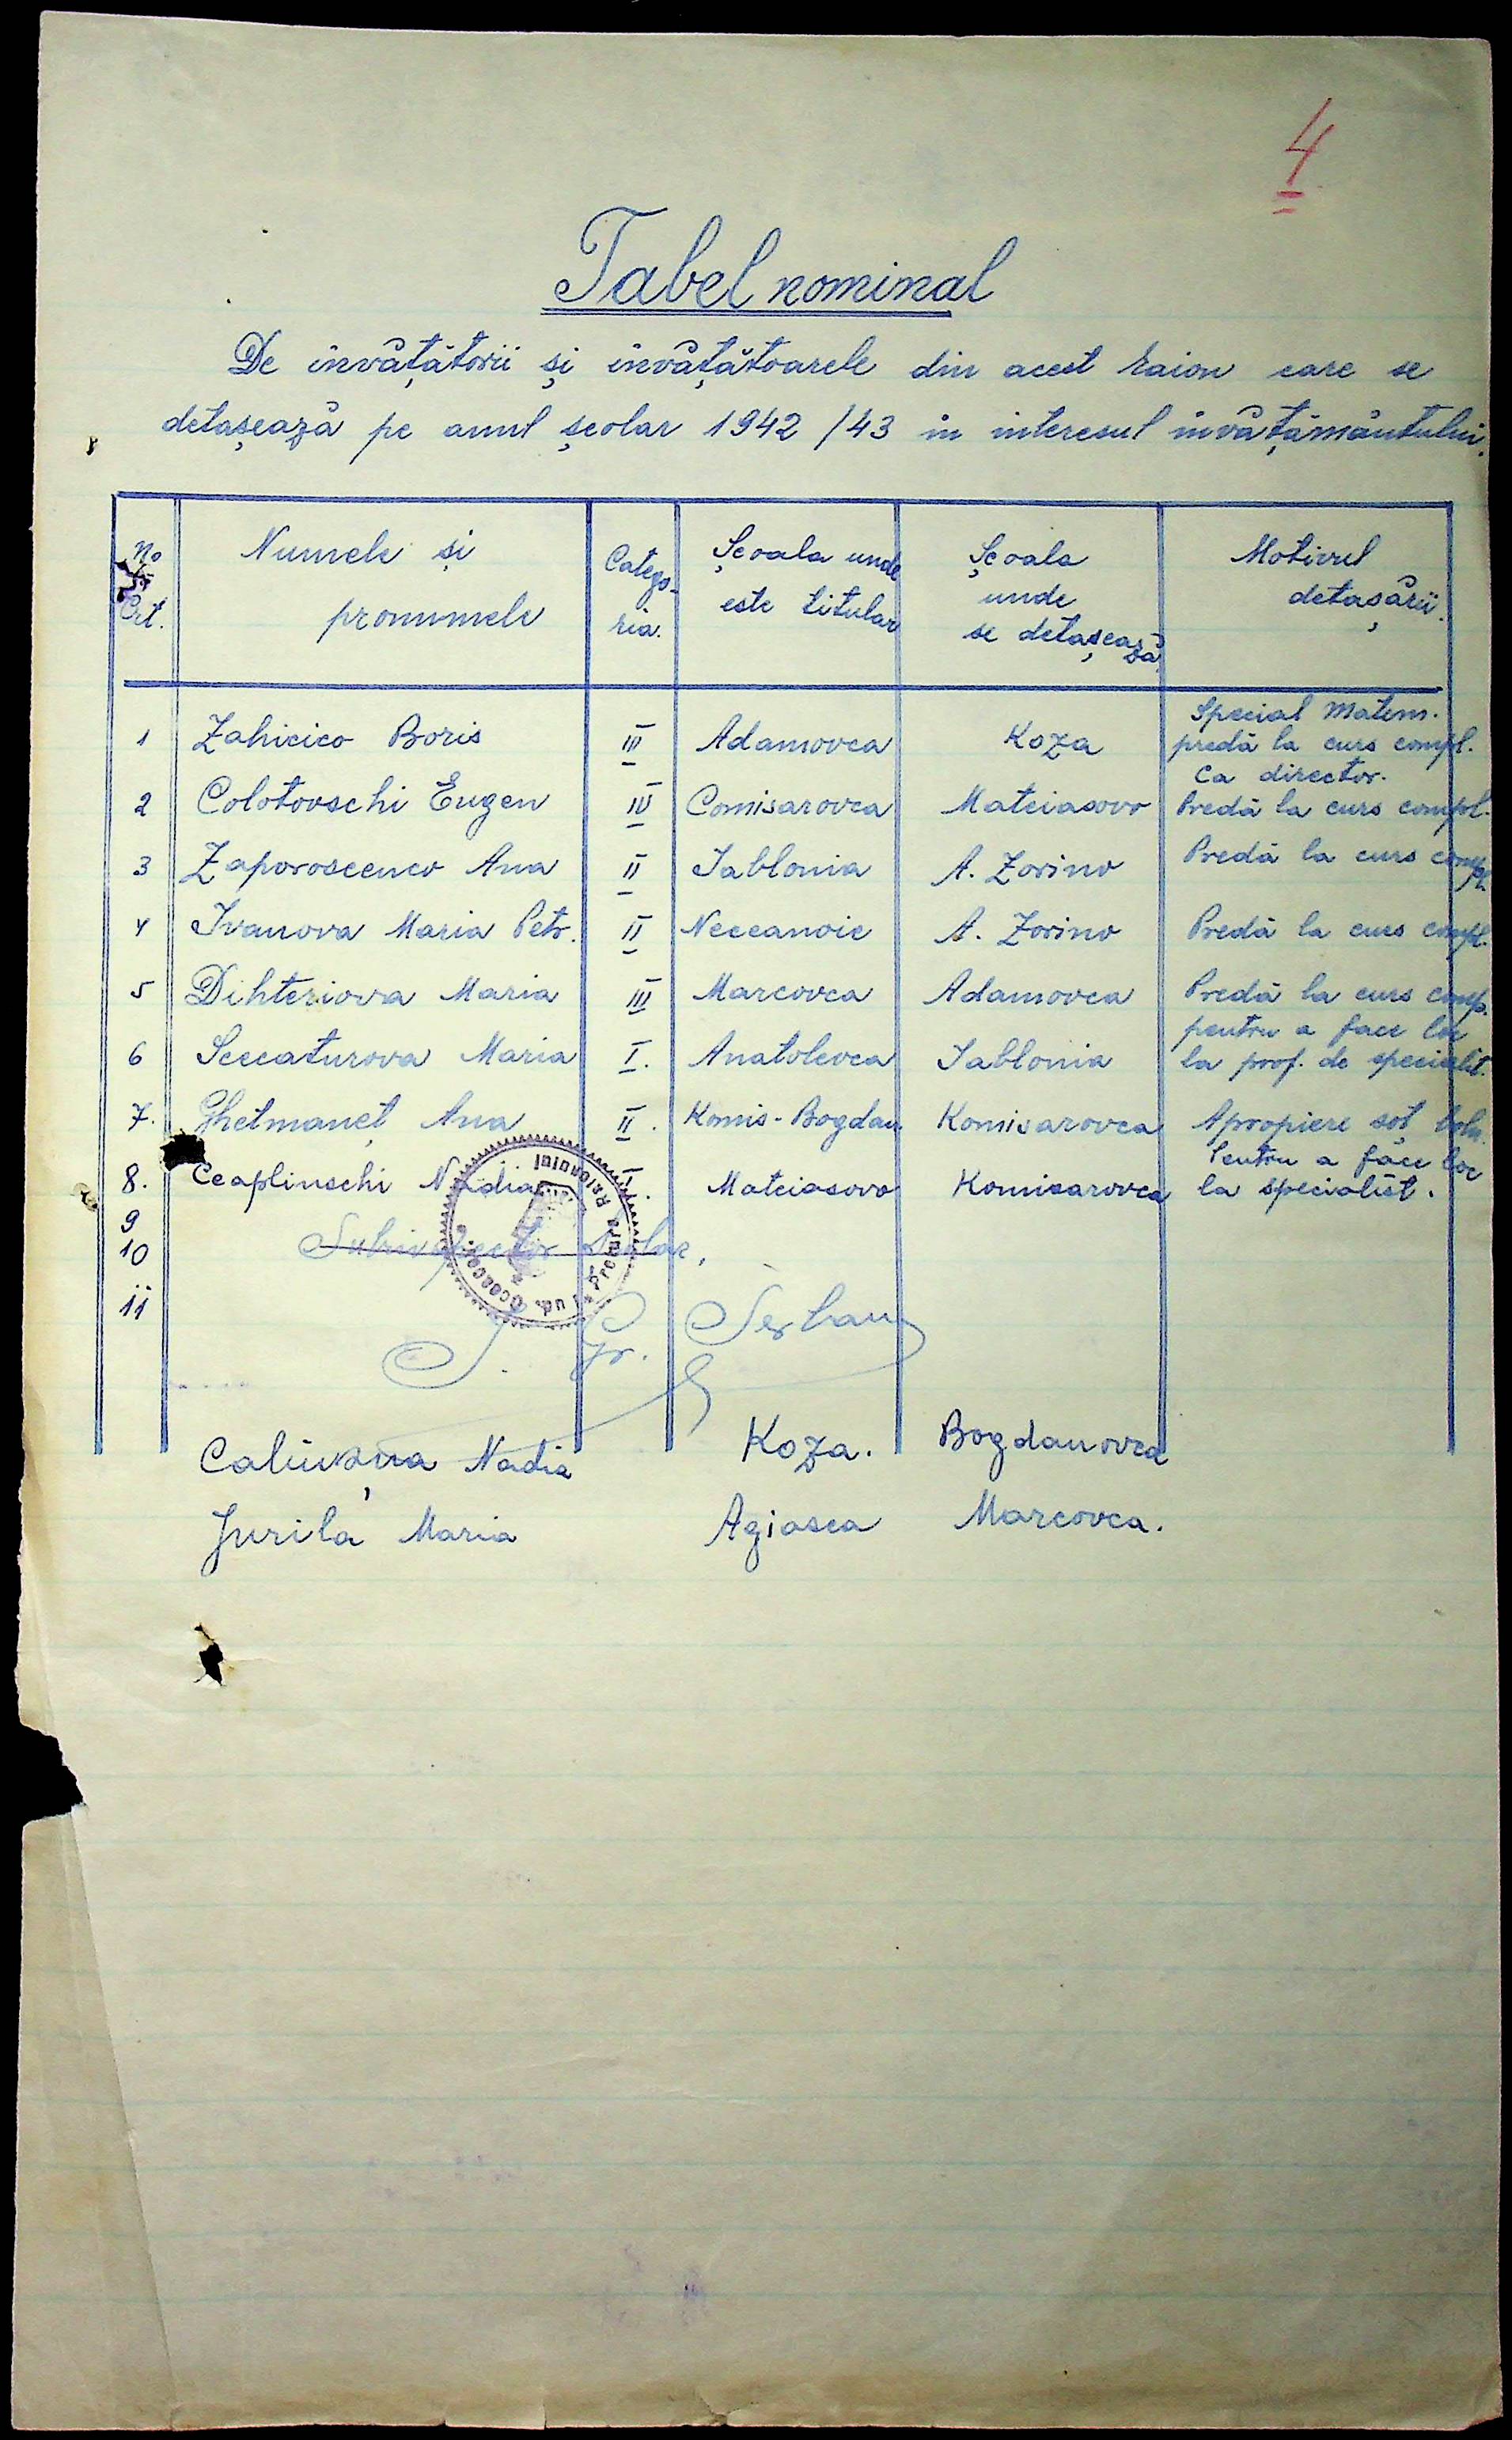 4
Tabel nominal
De învățătorii și învățătoarele din acest raion care se
detașează pe anul școlar 1942/43 în interesul învățământului.
No Crt. | Numele și pronumele | Catego-ria. | Școala unde este titular | Școala unde se detașează | Motivul detașării.
1 Zahicico Boris III Adamovca Koza Special Matem. predă la curs compl.
2 Colotovschi Eugen IV Comisarovca Mateiasovo Ca director. Predă la curs compl.
3 Zaporoscenco Ana II Iablonia A. Zorino Predă la curs compl.
4 Ivanova Maria Petr. II Neceanoie A. Zorino Predă la curs compl.
5 Dihteriova Maria III Marcovca Adamovca Predă la curs comp.
6 Seccaturova Maria I. Anatolevca Iablonia pentru a face loc la prof. de specialit.
7. Ghetmaneț Ana II. Komis-Bogdan Komisarovca Apropiere soț boln.
8. Ceaplinschi Nadia I. Mateiasovo Komisarovca Pentru a face loc la specialist.
9
10 Subinspector Școlar,
11
Gr. Serban
Nadia Koza. Bogdanovca
Jurila Maria Agiasca Marcovca.